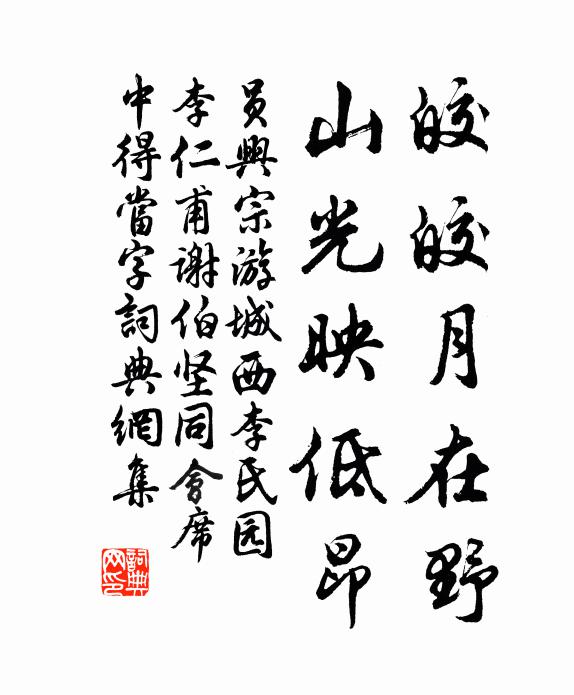 皎皎月在野
山光映低昂
员興宗游城西李氏园
李仁甫谢伯坚同會席
中得當字詞典網集
詞典网印